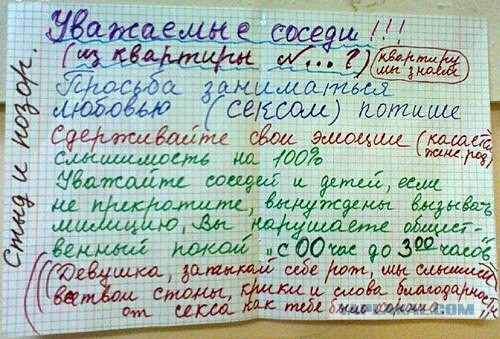 Уважаемые соседи!!!
(из квартиры №...?) (квартиру мы знаем)
Просьба заниматься
любовью (сексом) потише
Сдерживайте свои эмоции (касается женс. род)
слышимость на 100%
Уважайте соседей и детей, если
не прекратите, вынуждены вызывать
милицию, Вы нарушаете общест-
венный покой „с 00 час до 3 00 часов"
((Девушка, затыкай себе рот, мы слышим
все твои стоны, крики и слова благодарности
от секса как тебе было хорошо
Стыд и позор.